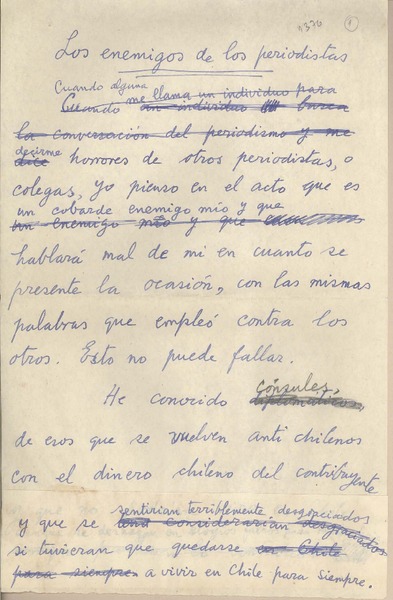 4376 1
Los enemigos de los periodistas
Cuando alguna
me llama un individuo para
Cuando un individuo busca
la conversación del periodismo y me
decirme
dice horrores de otros periodistas, o
colegas, yo pienso en el acto que es
un cobarde enemigo mío y que
un enemigo mío y que
hablará mal de mi en cuanto se
presente la ocasión, con las mismas
palabras que empleó contra los
otros. Esto no puede fallar.
cónsules,
He conocido diplomáticos,
de esos que se vuelven anti chilenos
con el dinero chileno del contribuyente
sentirían terriblemente desgraciados
y que se considerarían desgraciados
si tuvieran que quedarse en Chile
para siempre a vivir en Chile para siempre.